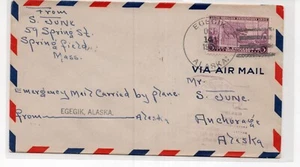 From
S. JUNE
59 Spring St.
Springfield
Mass.
EGEGIK
ALASKA
VIA AIR MAIL
Emergency Mail Carried by plane
From EGEGIK, ALASKA, Alaska
Mr.
S. JUNE.
Anchorage
Alaska